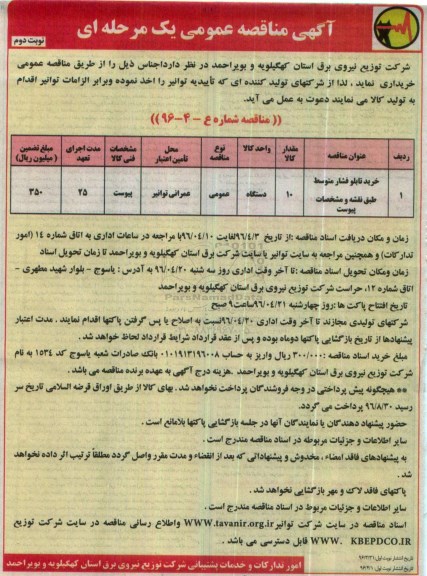 آگهی مناقصه عمومی یک مرحله ای
نوبت دوم
شرکت توزیع نیروی برق استان کهگیلویه و بویراحمد در نظر دارداجناس ذیل را از طریق مناقصه عمومی
خریداری نماید ، لذا از شرکتهای تولید کننده ای که تأییدیه توانیر را اخذ نموده وبرابر الزامات توانیر اقدام
به تولید کالا می نمایند دعوت به عمل می آید.
(( مناقصه شماره ع - ۴-۹۶ ))
ردیف عنوان مناقصه مقدار کالا واحد کالا نوع مناقصه محل تأمین اعتبار مشخصات فنی کالا مدت اجرای تعهد مبلغ تضمین ( میلیون ریال)
۱ خرید تابلو فشار متوسط طبق نقشه و مشخصات پیوست ۱۰ دستگاه عمومی عمرانی توانیر پیوست ۲۵ ۳۵۰
زمان و مکان دریافت اسناد مناقصه :از تاریخ ۹۶/۴/۳لغایت ۹۶/۰۴/۱۰با مراجعه در ساعات اداری به اتاق شماره ۱۴ (امور
تدارکات) و همچنین مراجعه به سایت توانیر یا سایت شرکت برق استان کهگیلویه و بویراحمد تا زمان تحویل اسناد
زمان ومکان تحویل اسناد مناقصه :تا آخر وقت اداری روز سه شنبه ۹۶/۰۴/۲۰ به آدرس : یاسوج - بلوار شهید مطهری -
اتاق شماره ۱۲، حراست شرکت توزیع نیروی برق استان کهگیلویه و بویراحمد
تاریخ افتتاح پاکت ها :روز چهارشنبه ۹۶/۰۴/۲۱ساعت۹ صبح
شرکتهای تولیدی مجازند تا آخر وقت اداری ۹۶/۰۴/۲۰نسبت به اصلاح یا پس گرفتن پاکتها اقدام نمایند . مدت اعتبار
پیشنهادها از تاریخ بازگشایی پاکتها دوماه بوده و پس از عقد قرارداد شرایط قرارداد لحاظ خواهد شد .
مبلغ خرید اسناد مناقصه :۳۰۰/۰۰۰ ریال واریز به حساب ۰۱۰۱۹۱۳۱۹۶۰۰۸ بانک صادرات شعبه یاسوج کد ۱۵۳۴ به نام
شرکت توزیع نیروی برق استان کهگیلویه و بویراحمد .هزینه درج آگهی به عهده برنده مناقصه می باشد .
** هیچگونه پیش پرداختی در وجه فروشندگان پرداخت نخواهد شد . بهای کالا از طریق اوراق قرضه اسلامی تاریخ سر
رسید ۹۶/۸/۳۰ پرداخت می گردد.
حضور پیشنهاد دهندگان یا نمایندگان آنها در جلسه بازگشایی پاکتها بلامانع است .
سایر اطلاعات و جزئیات مربوطه در اسناد مناقصه مندرج است .
به پیشنهادهای فاقد امضاء ، مخدوش و پیشنهاداتی که بعد از انقضاء و مدت مقرر واصل گردد مطلقاً ترتیب اثر داده نخواهد
شد .
پاکتهای فاقد لاک و مهر بازگشایی نخواهد شد .
سایر اطلاعات و جزئیات مربوط در اسناد مناقصه مندرج است .
اسناد مناقصه در سایت شرکت توانیرWWW.tavanir.org.ir واطلاع رسانی مناقصه در سایت شرکت توزیع
WWW. KBEPDCO.IR قابل دسترسی می باشد .
تاریخ انتشار نوبت اول :۹۶/۳/۳۱
امور تدارکات و خدمات پشتیبانی شرکت توزیع نیروی برق استان کهگیلویه و بویراحمد